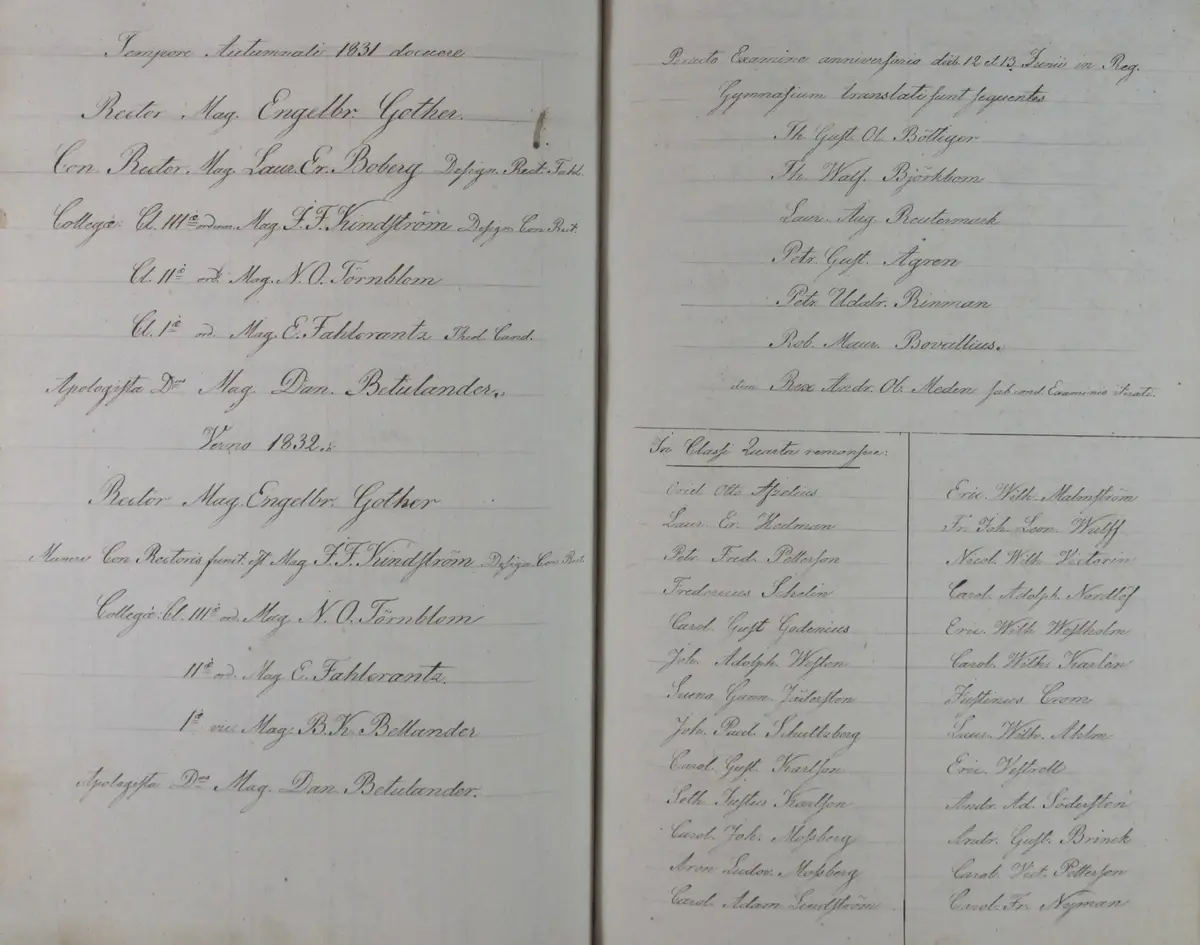 Tempore Autumnali 1831 docuere
Rector Mag. Engelbr. Gother.
Con Rector Mag. Laur. Er. Boberg Design. Rect. Fahl.
Collegæ: Cl. III ordinis Mag. F. F. Kindström Design Con Rect.
Cl. II ord. Mag. N. O. Törnblom
Cl. I ord. Mag. E. Fahlcrantz Theol Cand.
Apologista Dns Mag. Dan. Betulander.
Verno 1832.
Rector Mag. Engelbr. Gother
Munere Con Rectoris funct. est Mag F. F. Kindström Design Con Rect.
Collegæ: Cl. III ord. Mag. N. O. Törnblom
II ord. Mag E. Fahlcrantz.
I vic. Mag. B. K. Bellander
Apologista Dns Mag. Dan. Betulander.
Peracto Examine anniversario dieb. 12 et 13 Junii in Reg.
Gymnasium translati sunt sequentes
Th. Gust. Ol. Böttiger
Th. Walf. Björkbom
Laur. Aug. Reutermark
Petr. Gust. Ågren
Petr. Udalr. Rinman
Rob. Maur. Bovallius.
item Rex Andr. Ol. Meden sub cond. Examinis iterati.
In Classe Quarta remansere:
Ovid. Otto Afzelius
Laur. Er. Hedman
Petr. Fred. Petterson
Fredericus Schelin
Carol. Gust. Godenius
Joh. Adolph. Westen
Sveno Gunn. Jädersten
Joh. Paul. Schultzberg
Carol. Gust. Karlson
Seth. Justus Karlson
Carol. Joh. Mossberg
Aron Ludov. Mossberg
Carol. Adam Lindström
Eric. Wilh. Malmström
Fr. Joh. Leon. Wulff
Nicol. Wilh. Victorin
Carol. Adolph. Nordlöf
Eric. Wilh. Westholm
Carol. Wilh. Karlön
Justinus Crom
Laur. Wilh. Ahlm
Eric. Vestrell
Andr. Ad. Södersten
Andr. Gust. Brinck
Carol. Vict. Petterson
Carol. Fr. Nyman